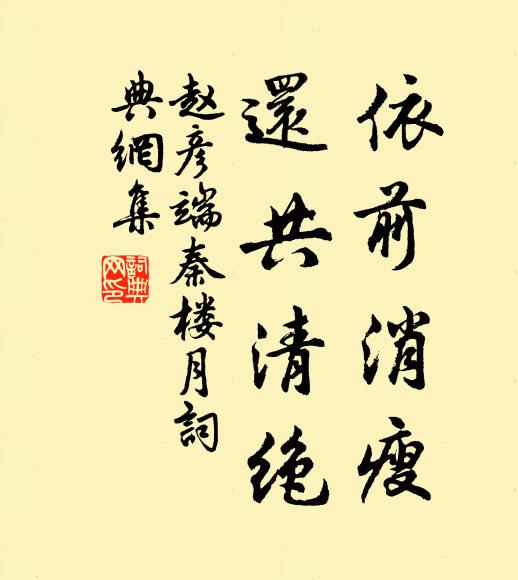 依前消瘦
還共清绝
赵彦端秦楼月詞
典網集
詞典
网印